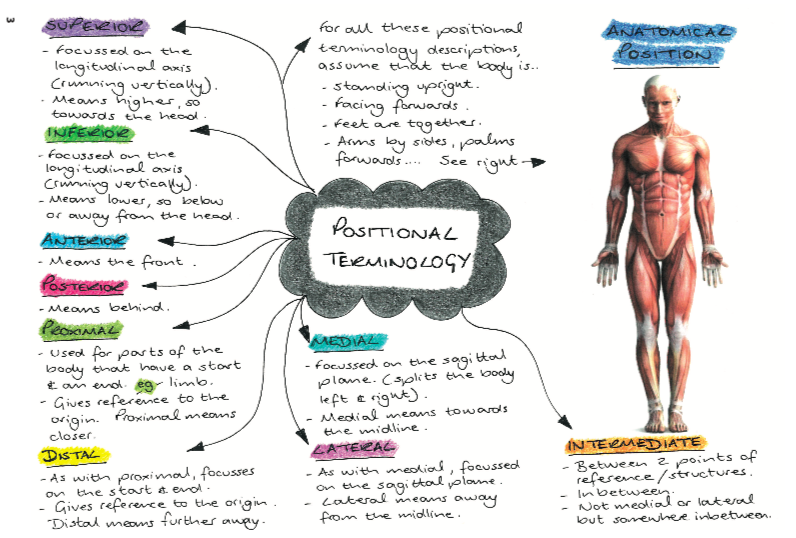 3
SUPERIOR
- Focussed on the
longitudinal axis
(running vertically).
- Means higher, so
towards the head.
INFERIOR
- Focussed on the
longitudinal axis
(running vertically).
- Means lower, so below
or away from the head.
ANTERIOR
- Means the front.
POSTERIOR
- Means behind.
PROXIMAL
- Used for parts of the
body that have a start
& an end. eg - limb.
- Gives reference to the
origin. Proximal means
closer.
DISTAL
- As with proximal, focusses
on the start & end.
- Gives reference to the origin.
Distal means further away.
For all these positional
terminology descriptions,
assume that the body is..
- standing upright.
- Facing forwards.
- Feet are together.
- Arms by sides, palms
forwards.... See right
POSITIONAL
TERMINOLOGY
MEDIAL
- Focussed on the sagittal
plane. (splits the body
left & right).
- Medial means towards
the midline.
LATERAL
- As with medial, focussed
on the sagittal plane.
- Lateral means away
from the midline.
ANATOMICAL
POSITION
INTERMEDIATE
- Between 2 points of
reference/structures.
- Inbetween.
- Not medial or lateral
but somewhere inbetween.